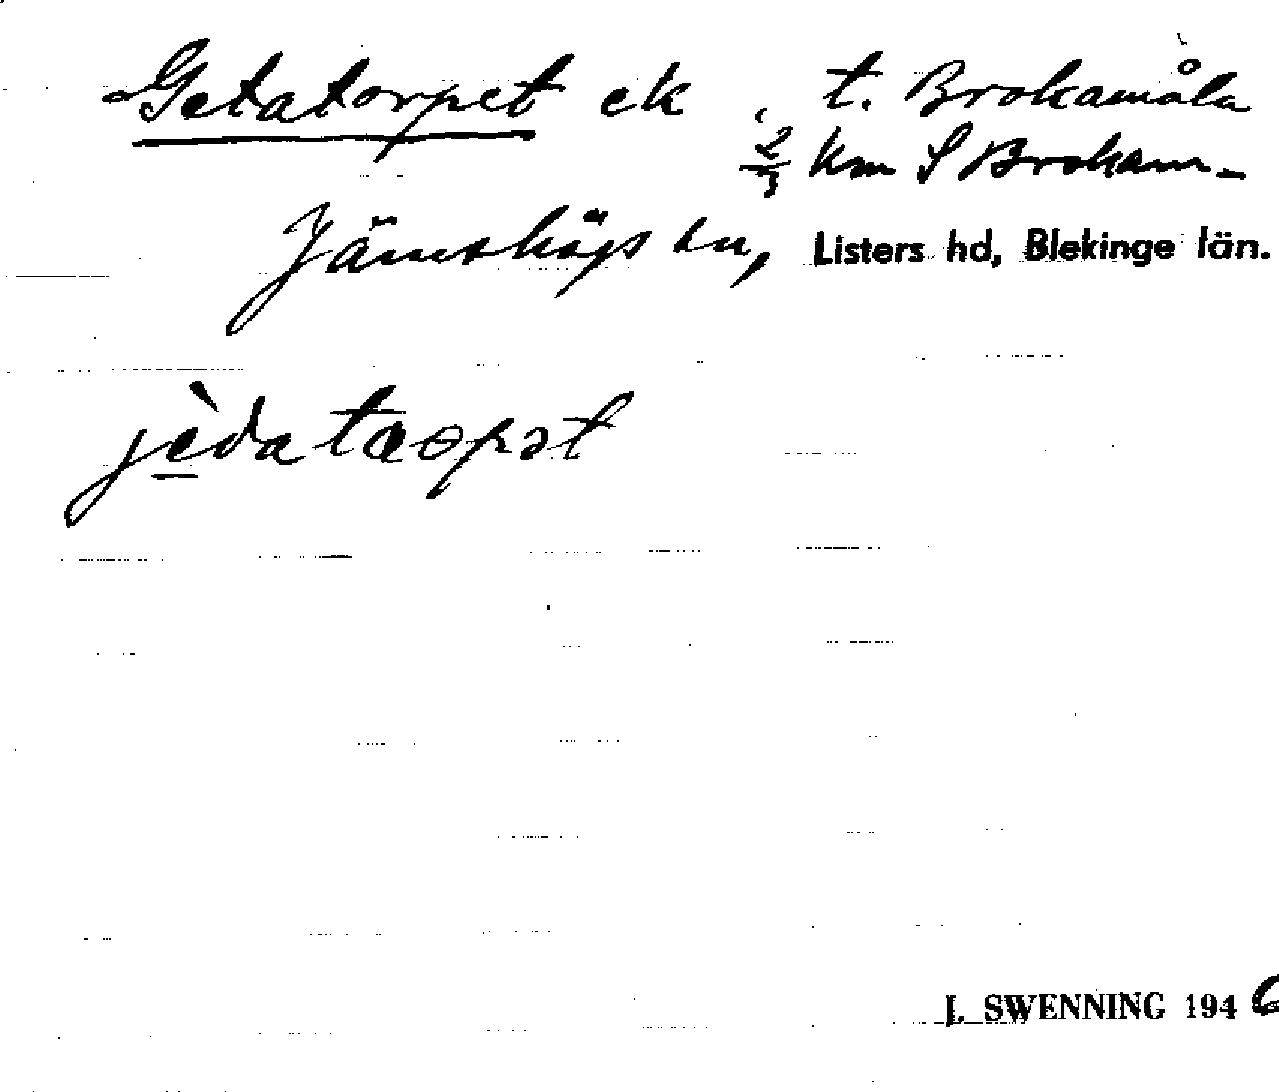 Getatorpet ek , t. Brokamåla
2/3 km S Brokam-
Jämshögs sn, Listers hd, Blekinge län.
jèdatæopət
J. SWENNING 1946